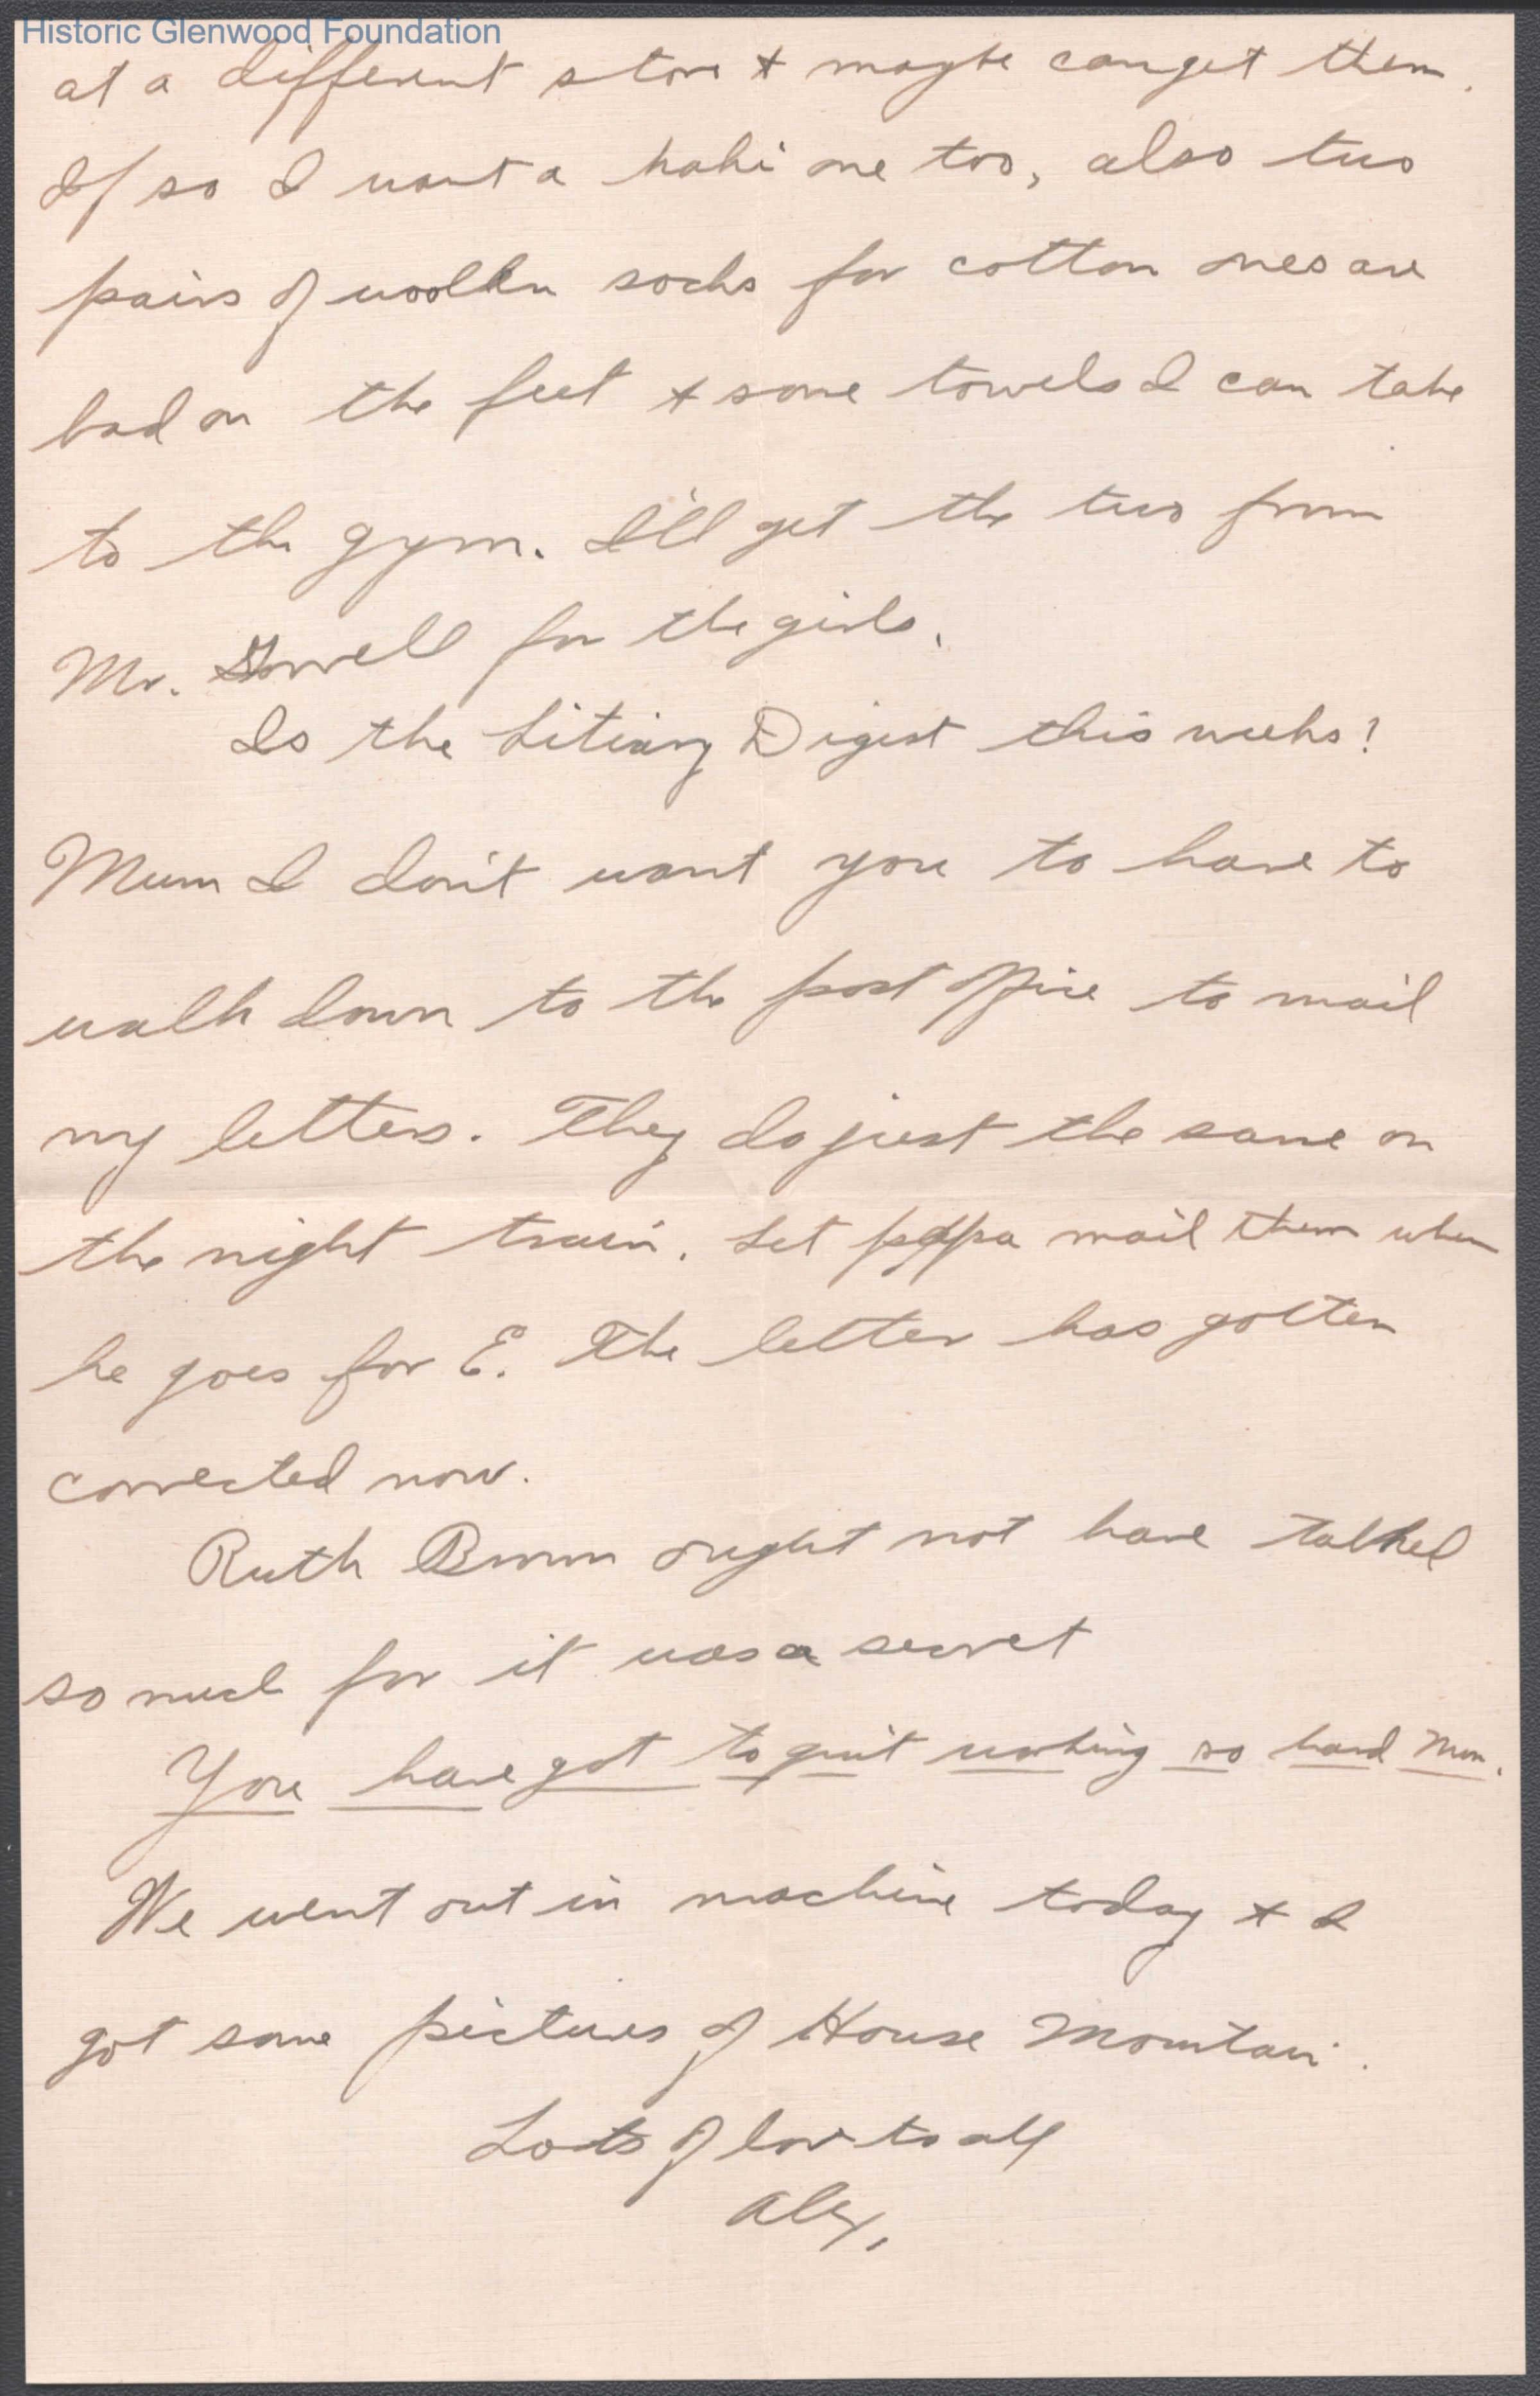 Historic Glenwood Foundation
at a different store & maybe can get them.
If so I want a kahi one too, also two
pairs of woolen socks for cotton ones are
bad on the feet & some towels I can take
to the gym. I'll get the two from
Mr. for the girls.
Is the Literary Digest this weeks?
Mum I don't want you to have to
walk down to the post office to mail
my letters. They do just the same on
the night train. Let pappa mail them when
he goes for E. The letter has gotten
corrected now.
Ruth Brown ought not have talked
so much for it was a secret
You have got to quit working so hard Mum.
We went out in machine today & I
got some pictures of House Mountain.
Lots of love to all
Alex,